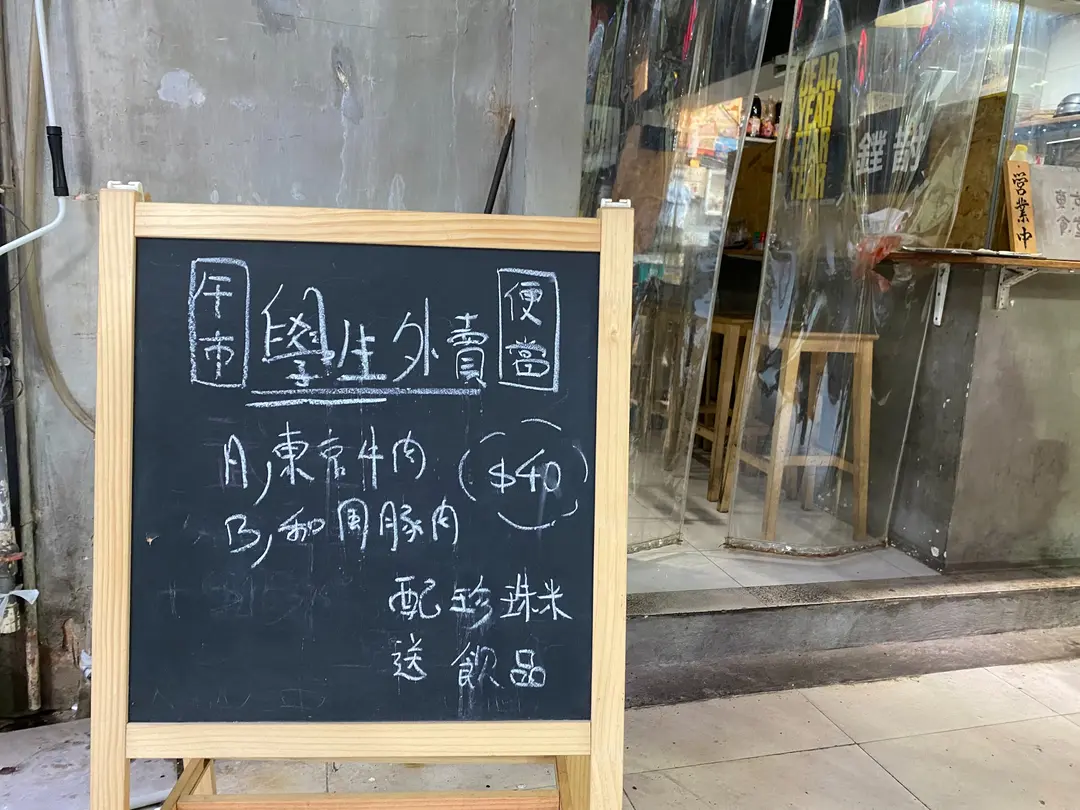 午市 學生外賣 便當
A, 東京牛肉 ($40)
B, 和風豚肉
配珍珠米
送飲品
營業中
DEAR,
YEAR